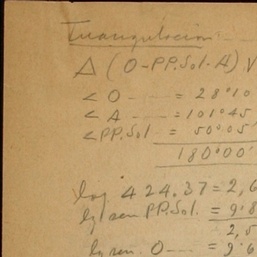 Triangulacion
Δ (O-PP.Sol-A) V
< O ---- = 28°10
< A ---- = 101°45
< PP.Sol. = 50°05'
180°00'
log 424.37 = 2,6
lg sen PP.Sol. = 9.8
2,5
lg sen. O --- = 9.6